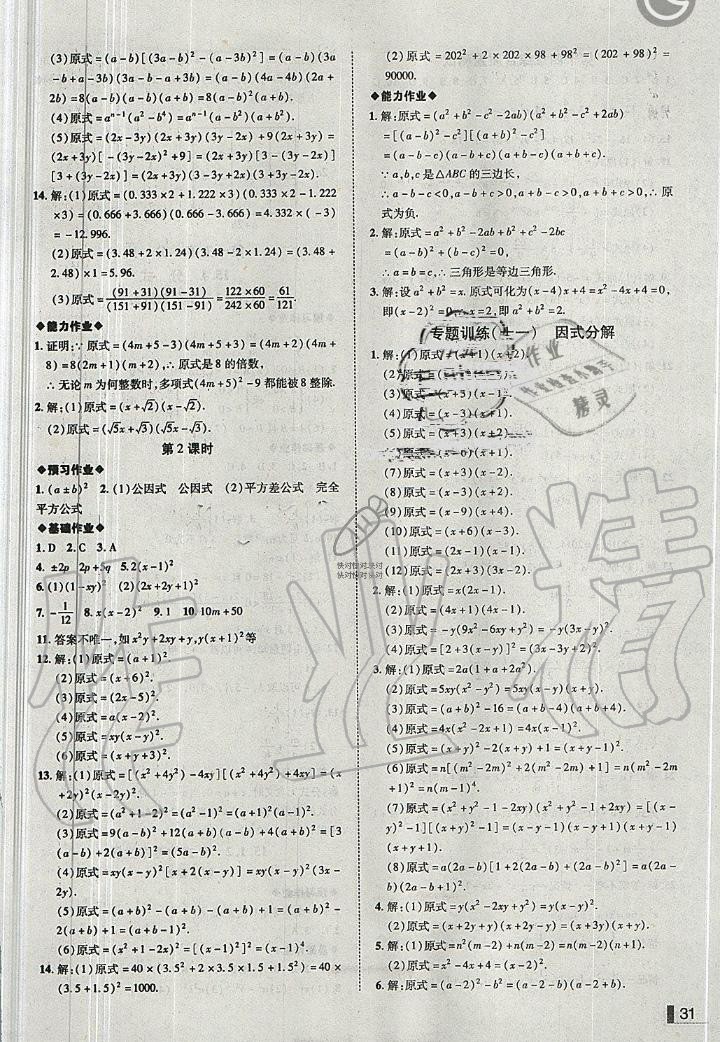 (3)原式=(a-b)[(3a-b)²-(a-3b)²]=(a-b)(3a
-b+a-3b)(3a-b-a+3b)=(a-b)(4a-4b)(2a+
2b)=8(a-b)(a-b)(a+b)=8(a-b)²(a+b).
(4)原式=aⁿ⁻¹(a²-b⁴)=aⁿ⁻¹(a-b²)(a+b²).
(5)原式=(2x-3y)(2x+3y)(3y-2x)+9(2x+3y)=
(2x+3y)[-(3y-2x)²+9]=(2x+3y)(3-3y+2x)
[3+(3y-2x)]=(2x+3y)(2x-3y+3)(3y-2x+3).
14.解:(1)原式=(0.333×2+1.222×3)(0.333×2-1.222
×3)=(0.666+3.666)(0.666-3.666)=4.332×(-3)
=-12.996.
(2)原式=(3.48+2×1.24)(3.48-2×1.24)=(3.48+
2.48)×1=5.96.
(3)原式=(91+31)(91-31)/(151+91)(151-91)=122×60/242×60=61/121.
◆能力作业◆
1.证明:∵原式=(4m+5-3)(4m+5+3)=(4m+2)(4m+
8)=8(2m+1)(m+2),∴原式是8的倍数,
∴无论m为何整数时,多项式(4m+5)²-9都能被8整除.
2.解:(1)原式=(x+√2)(x-√2).
(2)原式=(√5x+√3)(√5x-√3).
第2课时
◆预习作业◆
1.(a±b)² 2.(1)公因式 公因式 (2)平方差公式 完全
平方公式
◆基础作业◆
1.D 2.C 3.A
4.±2p 2p+5q 5.2(x-1)²
6.(1)(1-xy)² (2)(2x+2y+1)²
7.-1/12 8.x(x-2)² 9.1 10.10m+50
11.答案不唯一,如x²y+2xy+y,y(x+1)²等
12.解:(1)原式=(a+1)².
(2)原式=(x-6)².
(3)原式=(2x-5)².
(4)原式=a(x-2)².
(5)原式=xy(x-y)².
(6)原式=(x+y+3)².
13.解:(1)原式=[(x²+4y²)-4xy][(x²+4y²)+4xy]=(x
+2y)²(x-2y)².
(2)原式=(a²+1-2)²=(a²-1)²=(a+1)²(a-1)².
(3)原式=9(a-b)²+12(a+b)(a-b)+4(a+b)²=[3
(a-b)+2(a+b)]²=(5a-b)².
(4)原式=xy(x-y)²[x+2(x-y)]²=xy(x-y)²(3x-
2y)².
(5)原式=(a+b)²-2(a+b)+1=(a+b)²-
2(a+b)+1=(a+b-1)².
(6)原式=(x²+1-2x)²=[(x-1)²]²=(x-1)⁴.
14.解:(1)原式=40×(3.5²+2×3.5×1.5+1.5²)=40×
(3.5+1.5)²=1000.
(2)原式=202²+2×202×98+98²=(202+98)²=
90000.
◆能力作业◆
1.解:原式=(a²+b²-c²-2ab)(a²+b²-c²+2ab)
=[(a-b)²-c²][(a+b)²-c²]
=(a-b-c)(a-b+c)(a+b-c)(a+b+c).
∵a,b,c是△ABC的三边长,
∴a-b-c<0,a-b+c>0,a+b-c>0,a+b+c>0,∴原
式为负.
2.解:原式=a²+b²-2ab+b²+c²-2bc
=(a-b)²+(b-c)²=0.
∴a=b=c,∴三角形是等边三角形.
3.解:设a²+b²=x.原式可化为(x-4)x+4=x²-4x+4=0,
即(x-2)²=0,x=2,即a²+b²=2.
专题训练(十一) 因式分解
1.解:(1)原式=(x+1)(x+2).
(2)原式
(3)原式=(x+3)
(4)原式=(x-3)(x+1).
(5)原式=(x+3)
(6)原式
(7)原式=(x+3)(x-2).
(8)原式=(x-3)(x+2).
(9)原式=(x-6)(x+1).
(10)原式=(x+6)(x-3).
(11)原式=(2x-1)(x-1).
(12)原式=(2x+3)(3x-2).
2.解:(1)原式=x(2x-1).
(2)原式=(x-1)(x+y).
(3)原式=-y(9x²-6xy+y²)=-y(3x-y)².
(4)原式=[2+3(x-y)]²=(3x-3y+2)².
3.解:(1)原式=2a(1+a+2a²).
(2)原式=5xy(x²-y²)=5xy(x-y)(x+y).
(3)原式=(a+b)²-16=(a+b-4)(a+b+4).
(4)原式=4x(x²-2x+1)=4x(x-1)².
(5)原式=(x-y)(x²-y²)=(x-y)²(x+y).
(6)原式=n[(m²-2m)²+2(m²-2m)+1]=n(m²-2m
+1)²=n(m-1)⁴.
(7)原式=(x²+y²-1-2xy)(x²+y²-1+2xy)=[(x-
y)²-1][(x+y)²-1]=(x-y-1)(x-y+1)(x+y-1)
(x+y+1).
(8)原式=a(2a-b)[1+2(2a-b)+(2a-b)²]=a(2a
-b)(2a-b+1)².
4.解:(1)原式=y(x²-2xy+y²)=y(x-y)².
(2)原式=(x+y)(x+y+2x)=(x+y)(3x+y).
5.解:(1)原式=n²(m-2)+n(m-2)=n(m-2)(n+1).
(2)原式=x²-4x+4=(x-2)².
6.解:(1)原式=(a-2)²-b²=(a-b-2)(a-2+b).
31
快对快对快对
作业
精灵
作业精